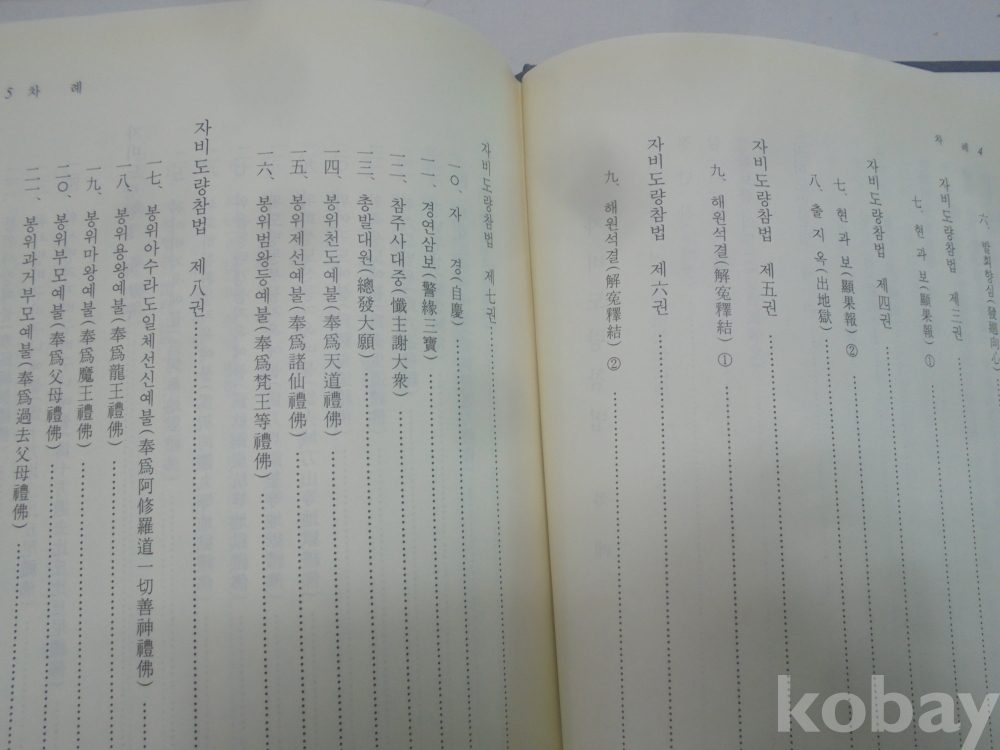 차 례 4
六、발회향심(發廻向心)
자비도량참법 제三권
七、현과보(顯果報) ①
자비도량참법 제四권
七、현과보(顯果報) ②
八、출지옥(出地獄)
자비도량참법 제五권
九、해원석결(解寃釋結) ①
자비도량참법 제六권
九、해원석결(解寃釋結) ②
5 차 례
자비도량참법 제七권
一〇、자 경(自慶)
一一、경연삼보(警緣三寶)
一二、참주사대중(懺主謝大衆)
一三、총발대원(總發大願)
一四、봉위천도예불(奉爲天道禮佛)
一五、봉위제선예불(奉爲諸仙禮佛)
一六、봉위범왕등예불(奉爲梵王等禮佛)
자비도량참법 제八권
一七、봉위아수라도일체선신예불(奉爲阿修羅道一切善神禮佛)
一八、봉위용왕예불(奉爲龍王禮佛)
一九、봉위마왕예불(奉爲魔王禮佛)
二〇、봉위부모예불(奉爲父母禮佛)
二一、봉위과거부모예불(奉爲過去父母禮佛)
kobay